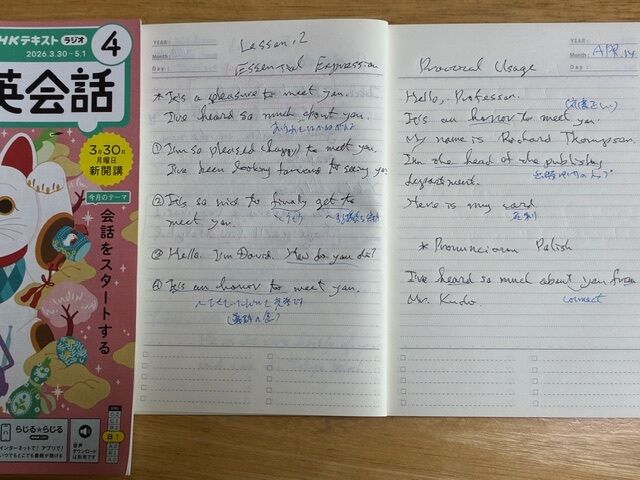 NHKテキスト ラジオ
2026 3.30~5.1
4
英会話
3月30日
月曜日
新開講
今月のテーマ
会話をスタートする
らじる★らじる
インターネットで! アプリで!
いつでもどこでも番組が聴ける
音声
ダウンロード
は別売です
B1
YEAR:
Month:
Day:
Lesson. 2
Essential Expression
* It's a pleasure to meet you.
I've heard so much about you.
① I'm so pleased (happy) to meet you.
I've been looking forward to seeing you
② It's so nice to finally get to
meet you.
③ Hello. I'm David. How do you do?
④ It's an honor to meet you.
YEAR:
Month:
Day:
APR. 14
Practical Usage
Hello, Professor.
It's an honor to meet you.
My name is Richard Thompson.
I'm the head of the publishing
department.
出版部門のトップ
Here is my card.
名刺
* Pronunciation Polish
I've heard so much about you from
Mr. Kudo.
connect